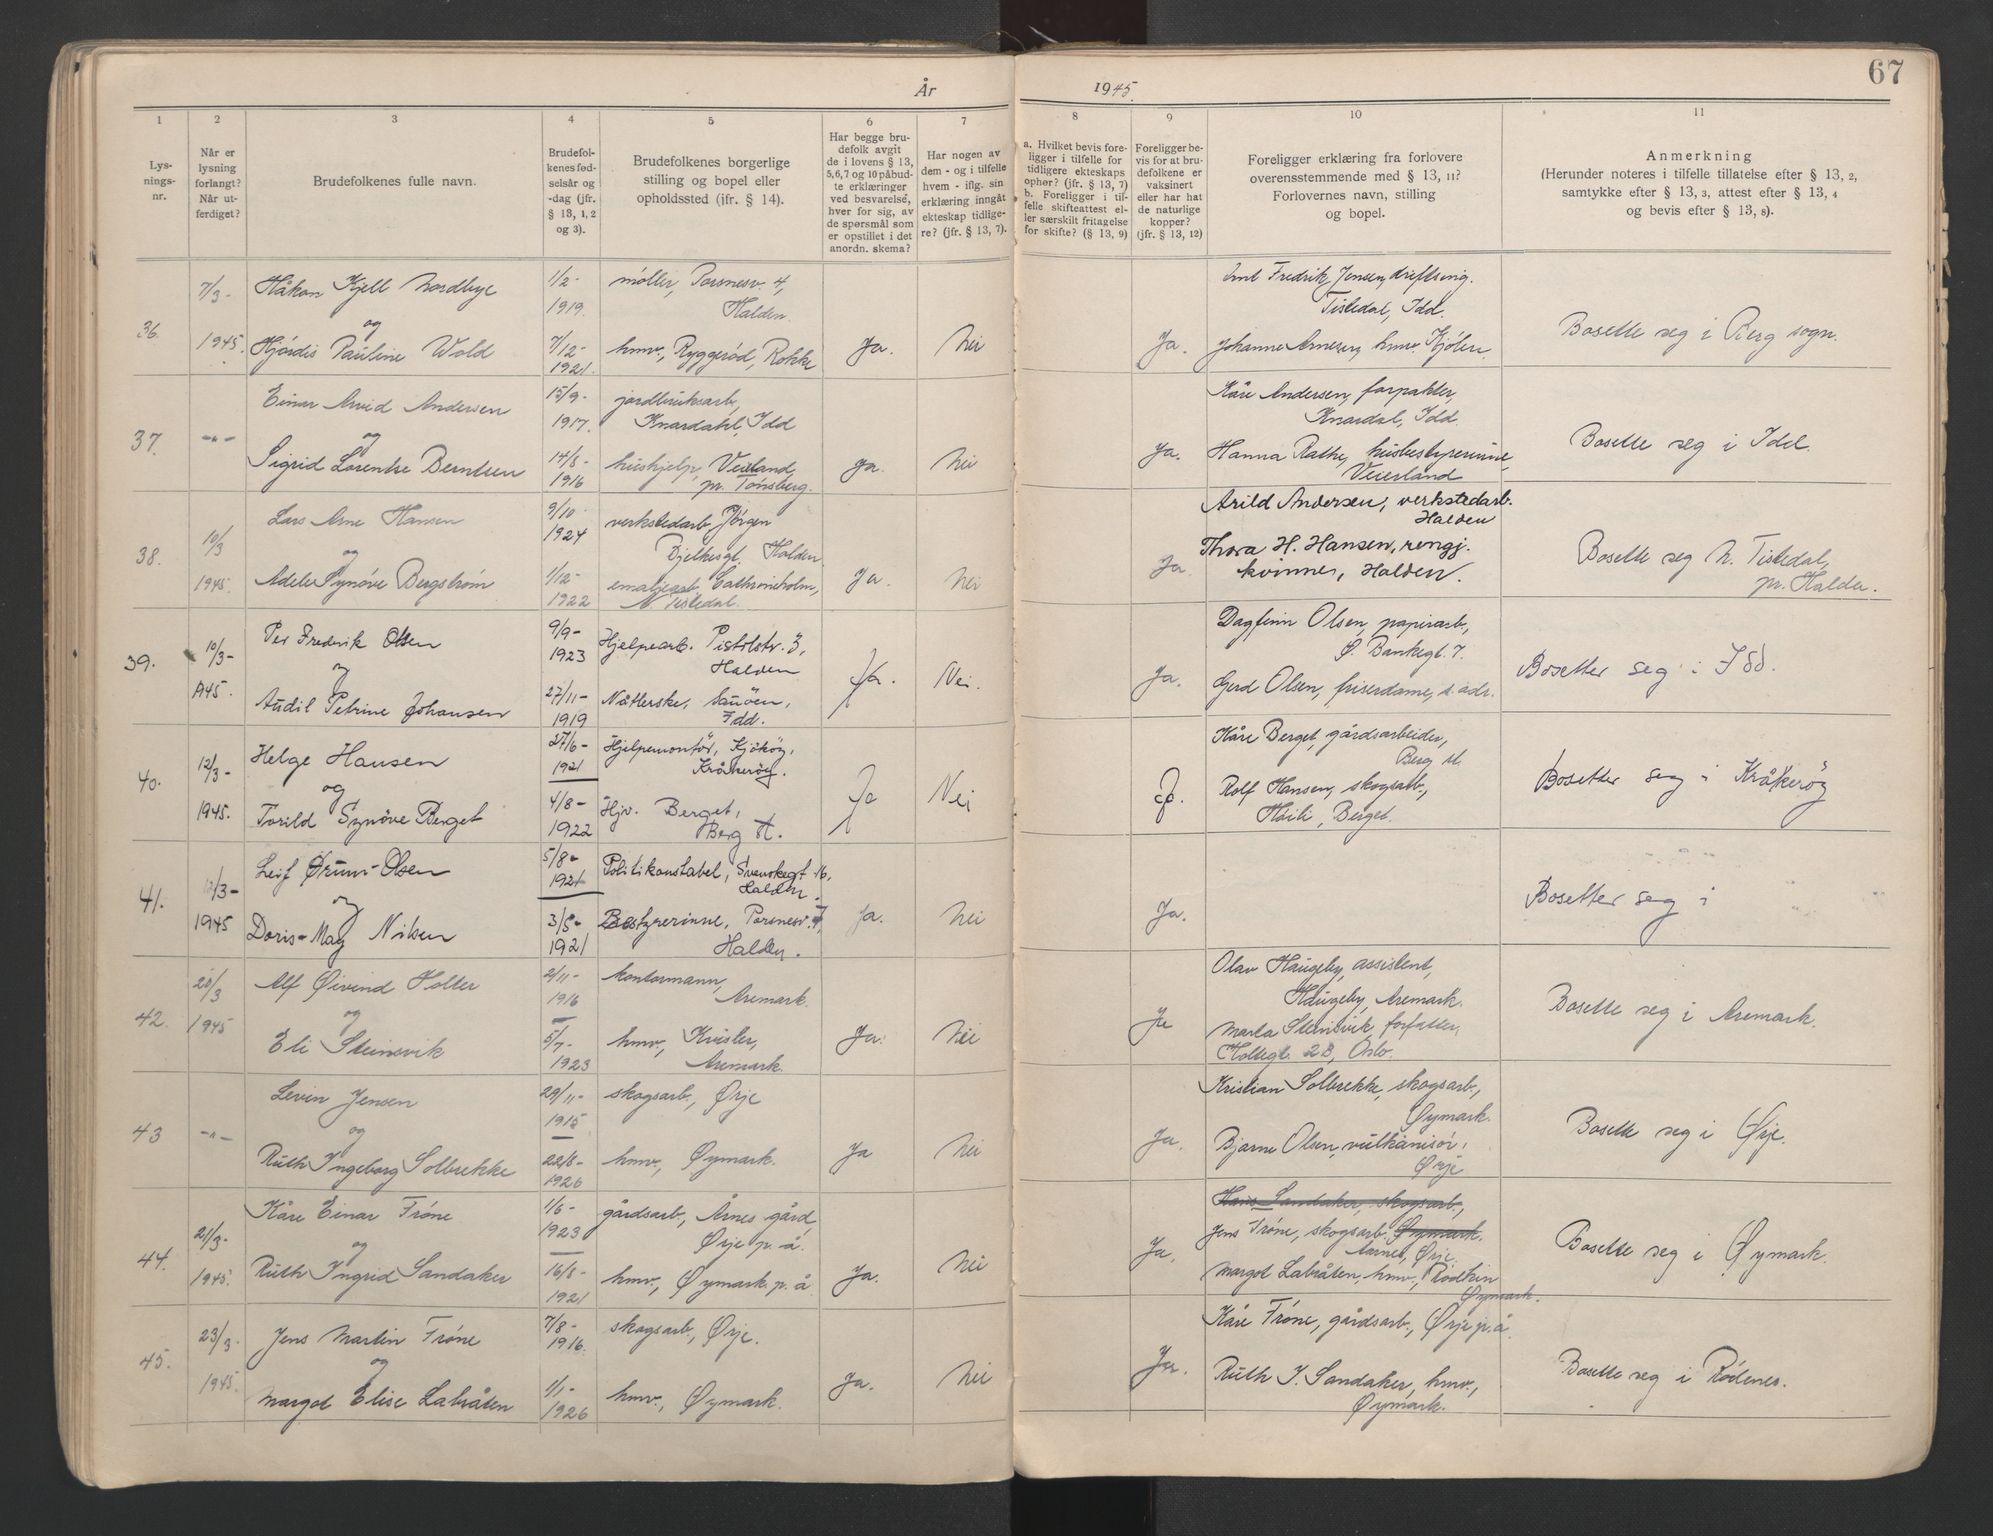 År 1945.
67
1 2 3 4 5 6 7 8 9 10 11
Lys-
nings-
nr.
Når er
lysning
forlangt?
Når ut-
ferdiget?
Brudefolkenes fulle navn.
Brudefol-
kenes fød-
selsår og
-dag (jfr.
§ 13, 1, 2
og 3).
Brudefolkenes borgerlige
stilling og bopel eller
opholdssted (jfr. § 14).
Har begge bru-
defolk avgit
de i lovens § 13,
5, 6, 7 og 10 påbud-
te erklæringer
ved besvarelse,
hver for sig, av
de spørsmål som
er opstillet i det
anordn. skema?
Har nogen av
dem - og i tilfelle
hvem - iflg. sin
erklæring inngåt
ekteskap tidlige-
re? (jfr. § 13, 7).
a. Hvilket bevis fore-
ligger i tilfelle for
tidligere ekteskaps
ophør? (jfr. § 13, 7)
b. Foreligger i til-
felle skifteattest el-
ler særskilt fritagelse
for skifte? (§ 13, 9)
Foreligger be-
vis for at bru-
defolkene er
vaksinert
eller har hat
de naturlige
kopper?
(jfr. § 13, 12)
Foreligger erklæring fra forlovere
overensstemmende med § 13, 11?
Forlovernes navn, stilling
og bopel.
Anmerkning
(Herunder noteres i tilfelle tillatelse efter § 13, 2,
samtykke efter § 13, 3, attest efter § 13, 4
og bevis efter § 13, 8).
36.
7/3-
1945.
Håkon Kjell Nordbye
og
Hjördis Pauline Wold
1/2-
1919.
7/12-
1921.
möller, Porsnesv. 4,
Halden.
hmv., Ryggeröd, Rokke
Ja.
Nei
Ja.
Fredrik Jensen, driftsing.
Tistedal, Idd.
Johanne Arnesen, hmv. Kjölen.
Bosette seg i Berg sogn.
37.
-"-
Einar Arvid Andersen
og
Sigrid Lorentse Berntsen
15/9-
1917.
14/8-
1916
jordbruksarb.,
Knardahl, Idd
hushjelp, Veierland,
pr. Tönsberg.
Ja.
Nei
Ja.
Kåre Andersen, forpakter,
Knardal, Idd.
Hanna Rathe, husbestyrerinne,
Veierland
Bosette seg i Idd.
38.
10/3
1945.
Lars Arne Hansen
og
Adele Synöve Bergström
9/10-
1924
1/12-
1922
verkstedarb., Jörgen
Bjelkesgt. Halden.
emaljearb. Cathrineholm,
N. Tistedal.
Ja.
Nei
Ja
Arild Andersen, verkstedarb.
Halden
Thora H. Hansen, rengj.
kvinne, Halden.
Bosette seg N. Tistedal,
pr. Halden.
39.
10/3-
1945.
Per Frederik Olsen
og
Audil Petrine Johansen
9/9-
1923
27/11-
1919
Hjelpearb. Pistolstr. 3,
Halden
Nåtlerske, Sauöen,
Idd.
Ja.
Nei.
Ja.
Dagfinn Olsen, papirarb.,
Ø. Bankegt. 7.
Gerd Olsen, friserdame, s. adr.
Bosetter seg i Idd.
40.
12/3-
1945.
Helge Hansen
og
Torild Synöve Berget
27/6-
1921
4/8-
1922
Hjelpemontör, Kjököy,
Kråkeröy.
Hjv. Berget,
Berg st.
Ja
Nei
J.
Kåre Berget, gårdsarbeider,
Berg st.
Rolf Hansen, skogsarb.,
Berget.
Bosetter seg i Kråkeröy
41.
12/3-
1945
Leif Ørum-Olsen
og
Doris-May Nilsen
5/8-
1921
3/5-
1921
Politikonstabel, Svenskegt. 16,
Halden.
Bestyrerinne, Porsnesv. 7,
Halden.
Ja.
Nei
Ja.
Bosetter seg i
42.
20/3
1945
Alf Øivind Holter
og
Eli Steinsvik
2/11-
1916
5/7-
1923
kontormann,
Aremark.
hmv., Krusler,
Aremark.
Ja.
Nei
Ja
Olav Haugeby, assistent,
Haugeby, Aremark.
Marta Steinsvik, forfatter,
Holtegt. 28, Oslo.
Bosette seg i Aremark.
43
-"-
Levin Jensen
og
Ruth Ingeborg Solbrekke
29/11-
1915
22/8-
1926
skogsarb., Ørje
hmv., Øymark.
Ja
Nei
Ja.
Kristian Solbrekke, skogsarb.,
Øymark.
Bjarne Olsen, vulkanisör.
Ørje
Bosette seg i Ørje.
44.
21/3-
1945.
Kåre Einar Tröne
og
Ruth Ingrid Sandaker
1/6-
1923
16/8-
1921
gårdsarb., Årnes gård,
Ørje p. å.
hmv., Øymark p. å
Ja.
Nei
Ja.
Hans Sandaker, skogsarb.,
Jens Tröne, skogsarb. Øymark.
Aarnes, Ørje
Margot Labråten, hmv.,
Øymark.
Bosette seg i Øymark.
45.
23/3-
1945.
Jens Martin Tröne
og
Margot Elise Labråten
7/8-
1916.
1/1-
1926
skogsarb., Ørje.
hmv., Øymark.
Ja.
Nei
Ja.
Kåre Tröne, gårdsarb., Ørje p. å
Ruth I. Sandaker, hmv.,
Øymark.
Bosette seg i Rödenes.